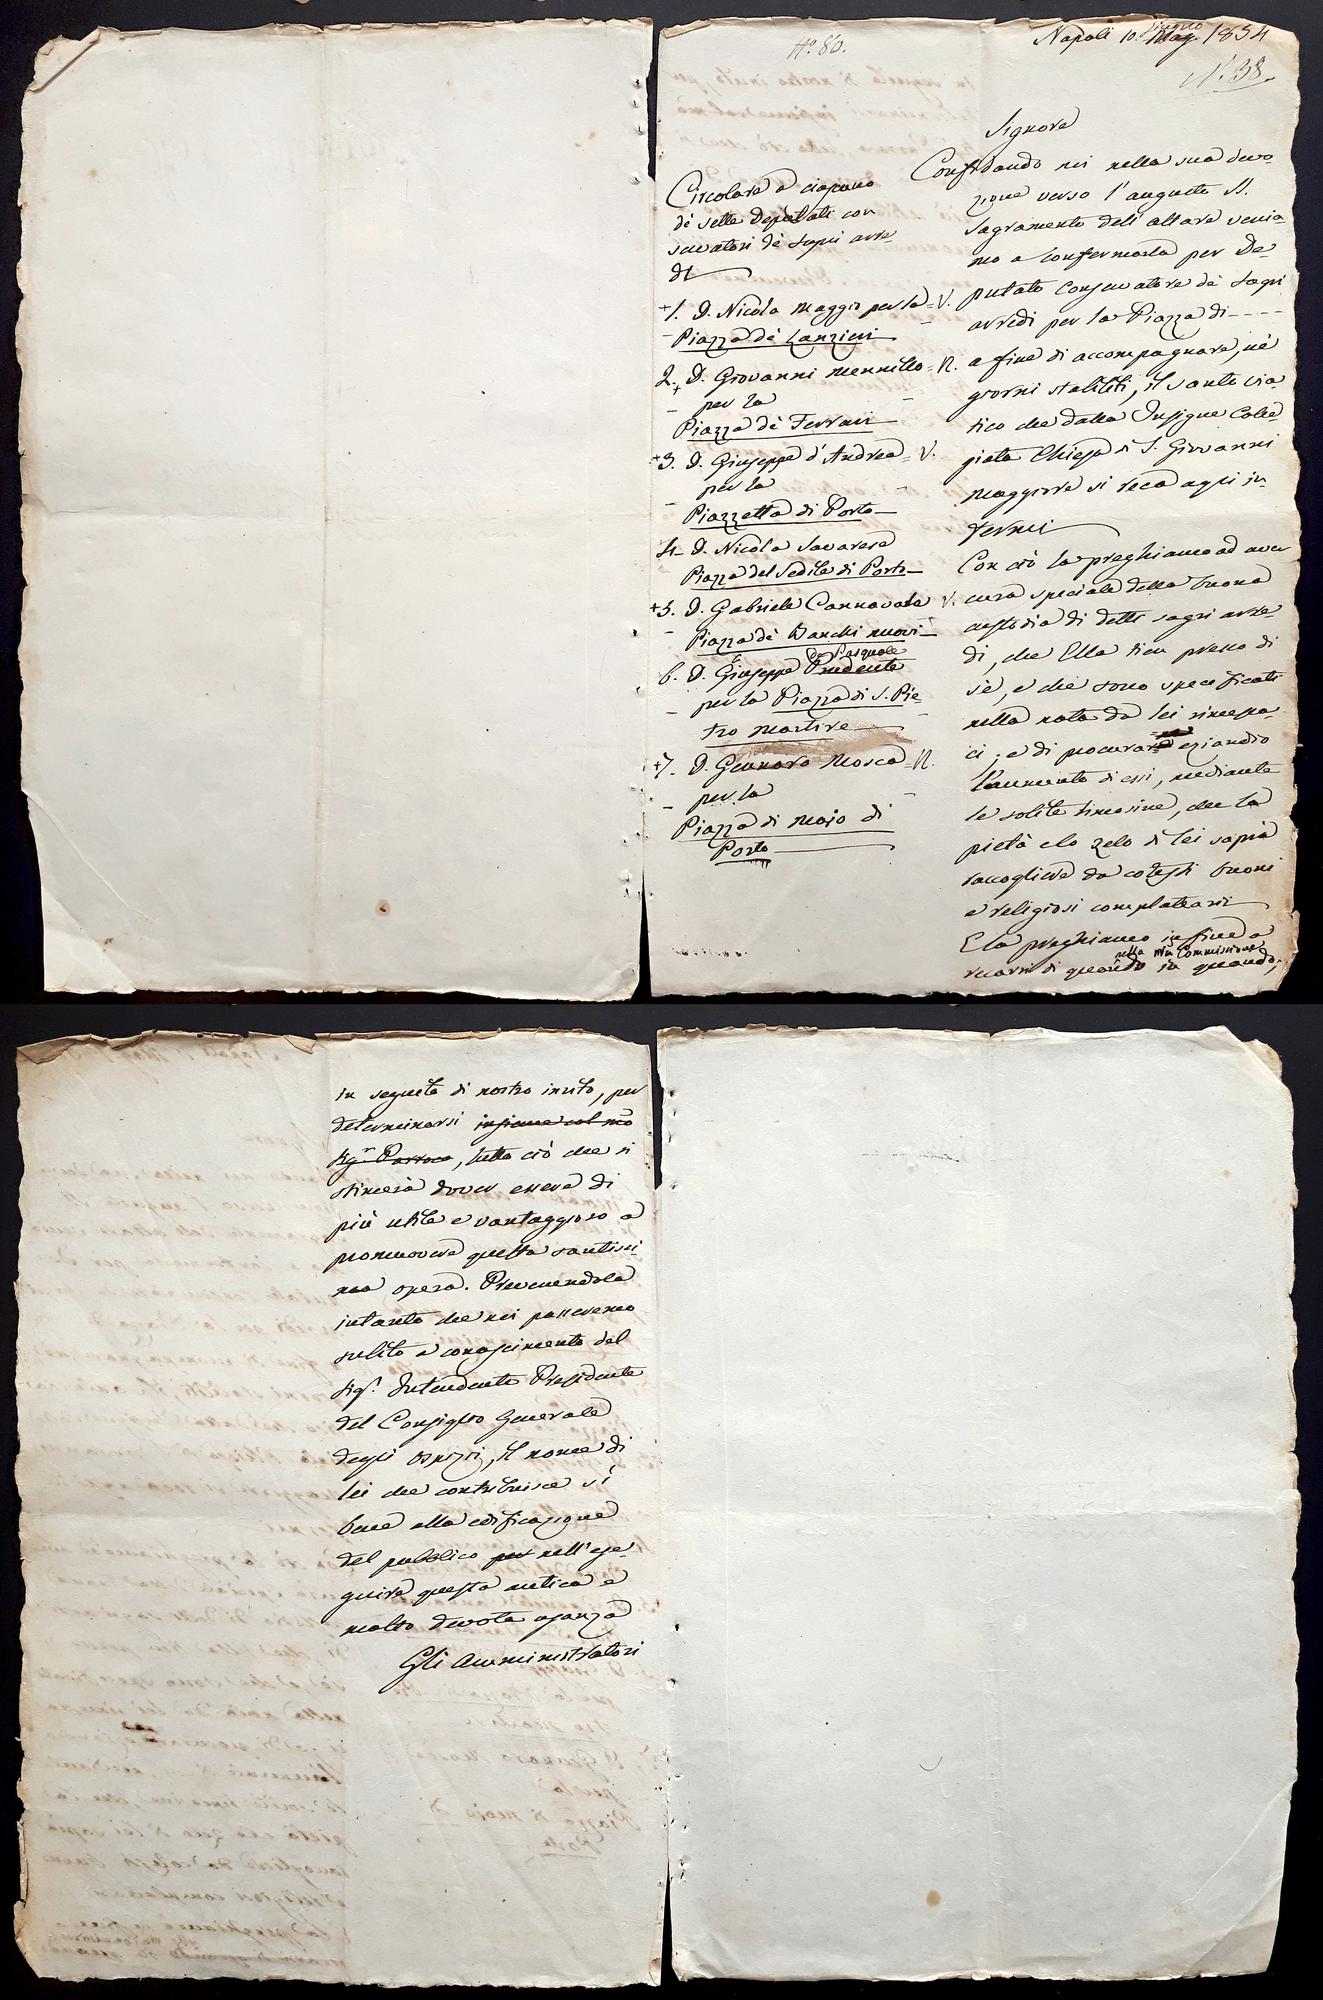 N.° 80.
Napoli 10. Giugno Mag. 1834
N.° 38.
Circolare a ciascuno
de' sette Deputati con
servatori de' sagri arre-
di
+1. D. Nicola Maggio per la = V.
Piazza de' Lanzieri
2. D. Giovanni Mennillo = N.
+
per la
Piazza de' Ferrari
+3. D. Giuseppe d'Andrea = V.
per la
Piazzetta di Porto
4. D. Nicola Savarese
Piazza del Sedile di Porto
+5. D. Gabriele Cannavale V.
Piazza de' Banchi nuovi
de Pasquale
6. D. Giuseppe Prudente
per la Piazza di S. Pie-
tro Martire
+7. D. Gennaro Mosca = N.
per la
Piazza di Majo di
Porto
Signore
Confidando noi nella sua devo-
zione verso l'augusto SS.
sagramento dell'altare venia-
mo a confermarla per De-
putato Conservatore de' sagri
arredi per la Piazza di - - - -
a fine di accompagnare, ne'
giorni stabiliti, il santo via-
tico che dalla Insigne Colle-
giata Chiesa di S. Giovanni
Maggiore si reca agli in-
fermi
Con ciò la preghiamo ad aver
cura speciale della buona
custodia di detti sagri arre-
di, che Ella tien presso di
sè, e che sono specificati
nella nota da lei rimessa-
ci; e di procurare eziandio
l'aumento di essi, mediante
le solite limosine, che la
pietà e lo zelo di lei saprà
raccogliere da cotesti buoni
e religiosi complatearii
E la preghiamo in fine a
nella Commissione
recarsi di quando in quando,
in seguito di nostro invito, per
determinarsi insieme col
Sig.r Parroco, tutto ciò che si
stimerà dover essere di
più utile e vantaggioso a
promuovere questa santissi-
ma opera. Prevenendola
intanto che noi passeremo
subito a conoscimento del
Sig.r Intendente Presidente
del Consiglio Generale
degli ospizj, il nome di
lei che contribuisce sì
bene alla edificazione
del pubblico per nell'ese-
guire questa antica e
molto devota usanza
Gli Amministratori